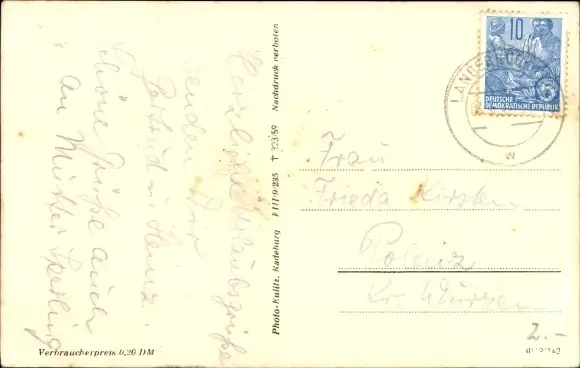 Herzliche Urlaubsgrüße
senden Dir
Gertrud u. Heinz.
Schöne Grüße auch
an Mutter Sperling
Verbraucherpreis 0,20 DM
Photo-Kulitz, Radeburg F III/9/285 T 323/59 Nachdruck verboten
10
DEUTSCHE
DEMOKRATISCHE REPUBLIK
5
w
Frau
Frieda Kirsten
Polenz
Kr. Wurzen
2.-